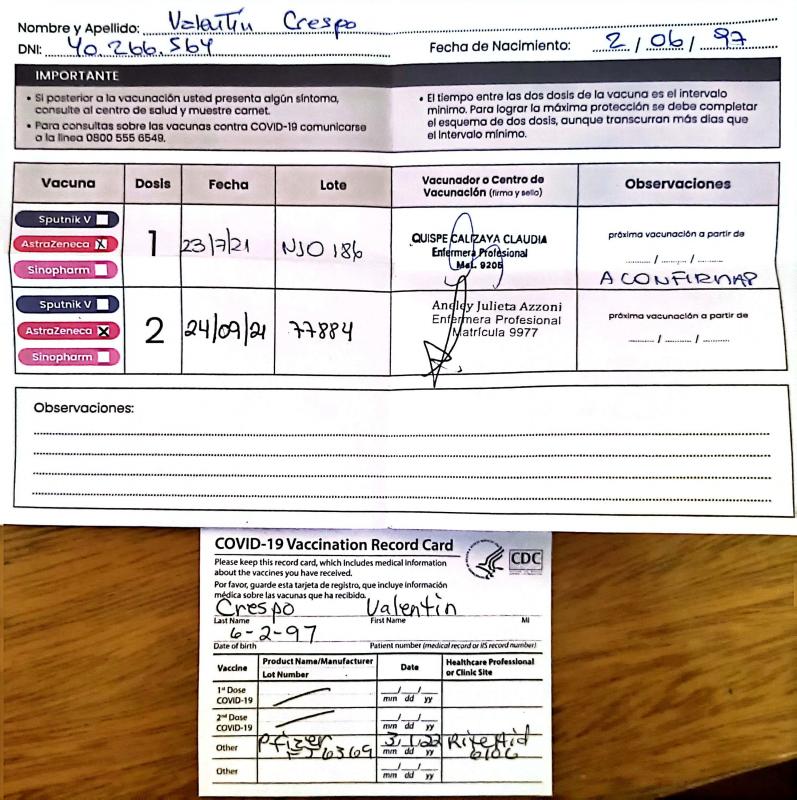 Nombre y Apellido: Valentín Crespo
DNI: 40.266.564 Fecha de Nacimiento: 2/06/97
IMPORTANTE
• Si posterior a la vacunación usted presenta algún síntoma,
consulte al centro de salud y muestre carnet.
• Para consultas sobre las vacunas contra COVID-19 comunicarse
a la línea 0800 555 6549.
• El tiempo entre las dos dosis de la vacuna es el intervalo
mínimo. Para lograr la máxima protección se debe completar
el esquema de dos dosis, aunque transcurran más días que
el intervalo mínimo.
Vacuna Dosis Fecha Lote Vacunador o Centro de Vacunación (firma y sello) Observaciones
Sputnik V
AstraZeneca X
Sinopharm
1 23/7/21 NJO 186
QUISPE CALIZAYA CLAUDIA
Enfermera Profesional
Mat. 9205
próxima vacunación a partir de
...... / ...... / ......
A CONFIRMAR
Sputnik V
AstraZeneca X
Sinopharm
2 24/09/21 77884
Andley Julieta Azzoni
Enfermera Profesional
Matrícula 9977
próxima vacunación a partir de
...... / ...... / ......
Observaciones:
COVID-19 Vaccination Record Card
CDC
Please keep this record card, which includes medical information
about the vaccines you have received.
Por favor, guarde esta tarjeta de registro, que incluye información
médica sobre las vacunas que ha recibido.
Crespo Valentin
Last Name First Name MI
6-2-97
Date of birth Patient number (medical record or IIS record number)
Vaccine Product Name/Manufacturer Lot Number Date Healthcare Professional or Clinic Site
1st Dose COVID-19 __/__/__ mm dd yy
2nd Dose COVID-19 __/__/__ mm dd yy
Other Pfizer 3/1/22 mm dd yy Rite Aid 6106
Other __/__/__ mm dd yy